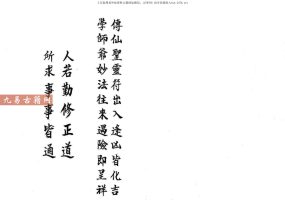 傳仙聖靈符出入逢凶皆化吉
學師爺妙法往來遇險即呈祥
人若勤修正道
所求事事皆通
九易古籍网